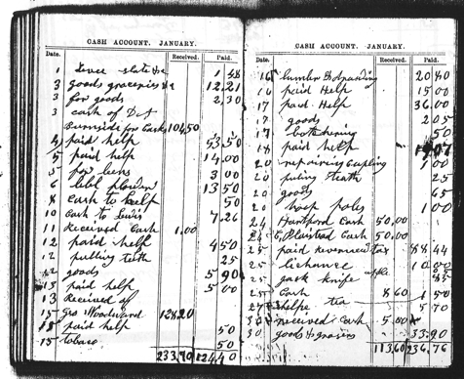 CASH ACCOUNT. JANUARY.
Date. Received. Paid.
1 slate &c 1 48
3 goods groceries &c 12.21
3 for goods 2.30
3 cash of
for Cash 104.50
4 paid help 53 50
5 paid help 14 00
5 for 3 00
6 13 50
8 Cash to help 50
10 Cash to Lewis 7.26
11 Received Cash 1.00
12 paid help 4 50
12 pulling teeth 25
12 goods 5 90
13 paid help 5 00
13 Received of
15 Geo Woodward 128.20
15 paid help 50
15 tobaco 50
233.70 124.40
CASH ACCOUNT. JANUARY.
Date. Received. Paid.
16 lumber & 20 80
16 paid Help 15 00
17 paid Help 36.00
17 goods 2 05
17 50
18 paid help
20 repairing 1 00
20 puling teath 25
20 goods 65
20 hoop poles 1 00
24 Hartford Cash 50.00
Cash 50.00
25 paid revenue tax 88.44
25 lichance
25 jack knife
25 Cash 8 60 1 50
27 tea 5 70
30 received Cash 5.00
30 goods & 33.90
113.60 236.76